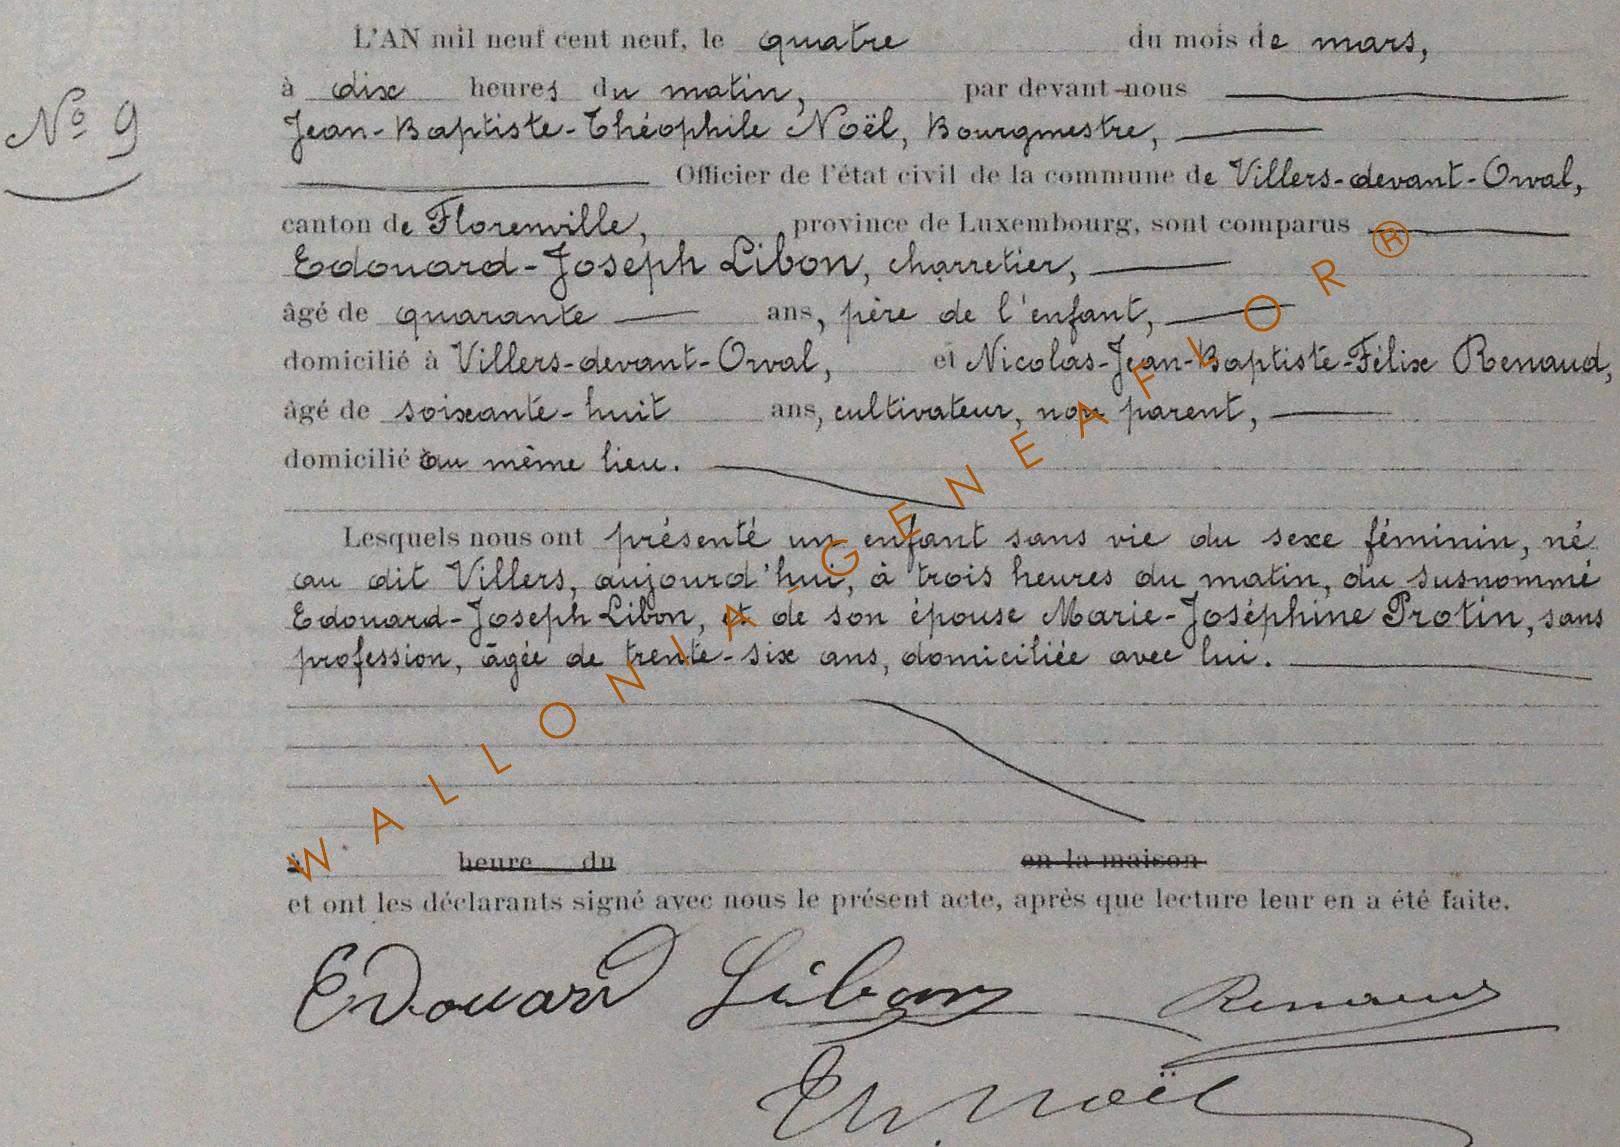 L'AN mil neuf cent neuf, le quatre du mois de mars,
à dix heures du matin, par devant-nous
Nº 9
Jean-Baptiste-Théophile Noël, Bourgmestre,
Officier de l'état civil de la commune de Villers-devant-Orval,
canton de Florenville, province de Luxembourg, sont comparus
Edouard-Joseph Libon, charretier,
âgé de quarante ans, père de l'enfant,
domicilié à Villers-devant-Orval, et Nicolas-Jean-Baptiste-Félix Renaud,
âgé de soixante-huit ans, cultivateur, non parent,
domicilié au même lieu.
Lesquels nous ont présenté un enfant sans vie du sexe féminin, né
au dit Villers, aujourd'hui, à trois heures du matin, du susnommé
Edouard-Joseph Libon, et de son épouse Marie-Joséphine Protin, sans
profession, âgée de trente-six ans, domiciliée avec lui.
à heure du en la maison
et ont les déclarants signé avec nous le présent acte, après que lecture leur en a été faite.
Edouard Libon Renaud
Th. Noël
WALLONIA-GENEAFLOR®